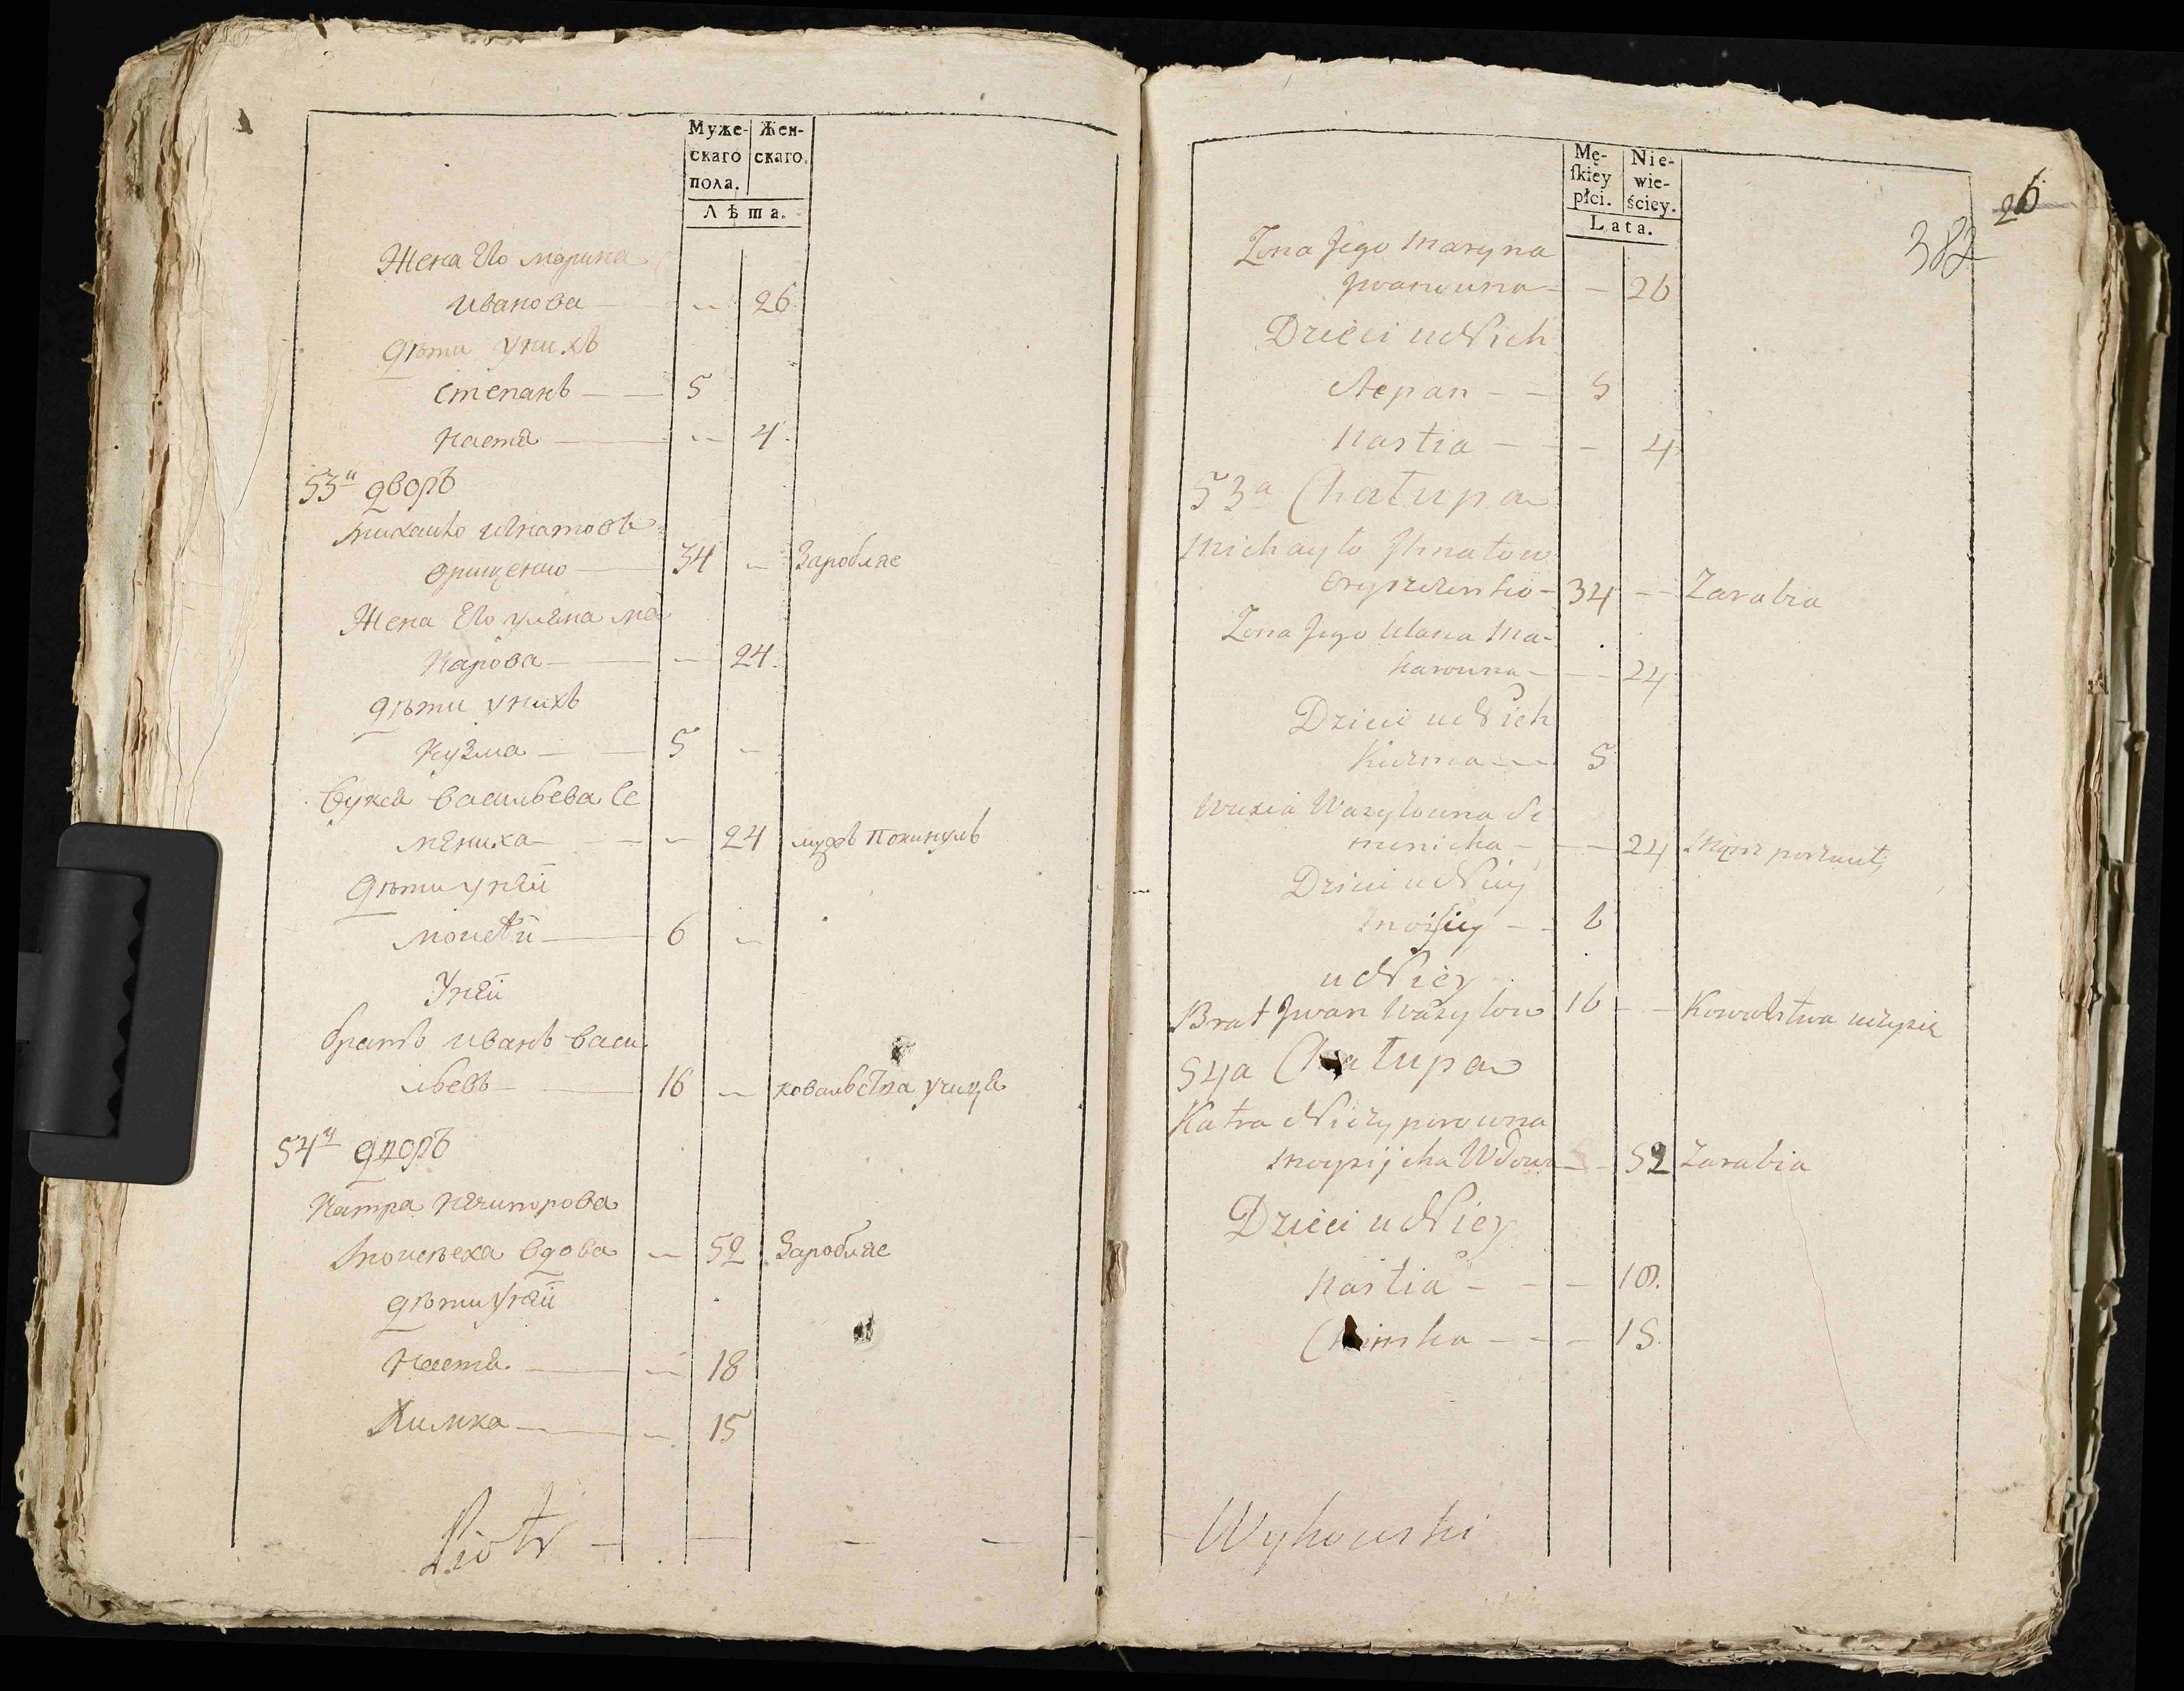 Муже- Жен-
скаго скаго.
пола.
Лѣта.
Жена Его Марина
Иванова — 26
Дѣти унихъ
Степанъ — 5
Настя — 4.
53й дворъ
Михайло Игнатовъ
Орищенко — 34 — Заробляе
Жена Его Уляна Ма
карова — 24.
Дѣти унихъ
Кузма — 5 —
Вукся Васильева Се
мениха — 24 мужъ покинулъ
Дѣти унеи
Моисей — 6 —
Унеи
братъ Иванъ Васи
льевъ — 16 — ковальства учица
54й дворъ
Катра Нечипорова
Моисѣеха вдова — 52 Заробляе
дѣти унеи
Настя — 18
Химка — 15
Piotr —
26
382
Mę- Nie-
ſkiey wie-
płci. ściey.
Lata.
Zona Jego Maryna
Jwanowna — 26
Dzieci u Nich
Stepan — 5
Nastia — 4
53a Chałupa
Michayło Jhnatow
Oryszczenko — 34 — Zarabia
Zona Jego Ulana Ma-
karowna — 24
Dzieci u Nich
Kuzma — 5
Wuxia Wasylowna Se
menicha — 24 Mąż porzucił
Dzieci u Niey
Moisiey — 6
u Niey
Brat Jwan Wasylow 16 — Kowalstwa uczysię
54a Chałupa
Katra Niczyporowna
Moysijcha Wdowa — 52 Zarabia
Dzieci u Niey
Nastia — 18.
Chimka — 15.
Wyhowski